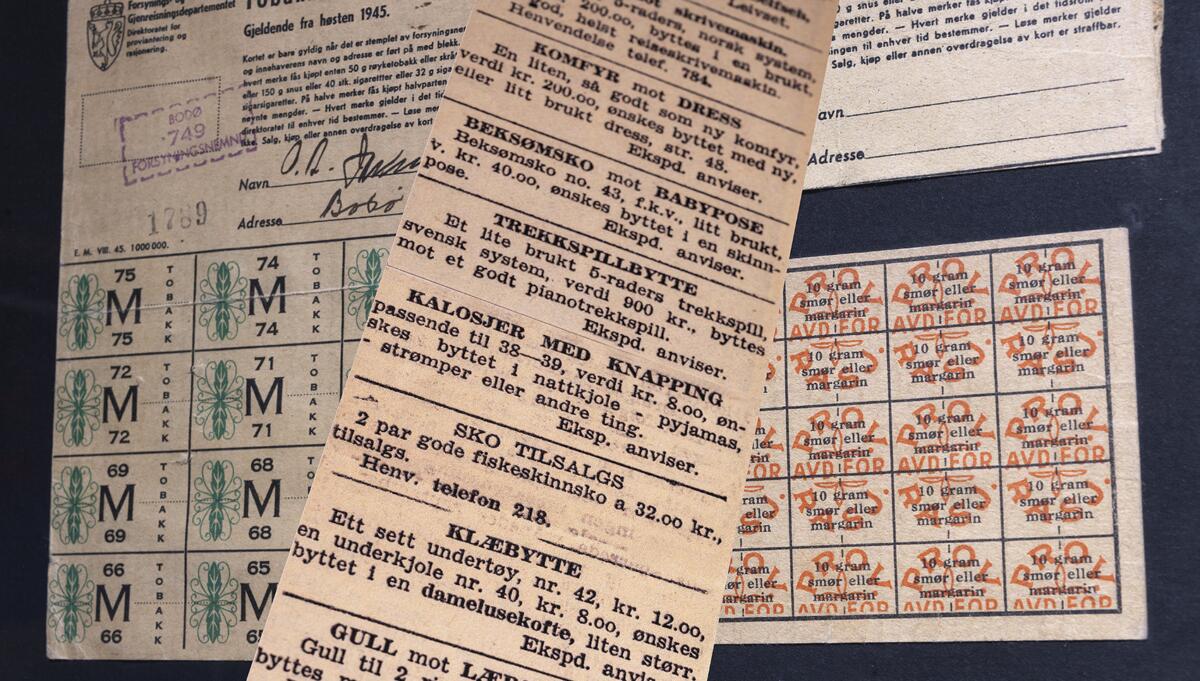 Forsynings- og
Gjenreisningsdepartementet
Direktoratet for
proviantering og
rasjonering.
Gjeldende fra høsten 1945.
Kortet er bare gyldig når det er stemplet av forsyningsnem
og innehaverens navn og adresse er ført på med blekk.
hvert merke fås kjøpt enten 50 g røyketobakk eller skrå
eller 150 g snus eller 40 stk. sigaretter eller 32 g sigar
sigarsigaretter. På halve merker fås kjøpt halvparten
nevnte mengder. — Hvert merke gjelder i det tid
direktoratet til enhver tid bestemmer. — Løse mer
ikke. Salg, kjøp eller annen overdragelse av kort
BODØ
749
FORSYNINGSNEMND
Navn
Adresse Bodø
1789
E. M. VIII. 45. 1 000 000.
75 M 75 TOBAKK
74 M 74 TOBAKK
72 M 72 TOBAKK
71 M 71 TOBAKK
69 M 69 TOBAKK
68 M 68 TOBAKK
66 M 66 TOBAKK
65 M
mot skrivemaskin.
200.00, byttes i en brukt
5-raders, norsk system,
god, helst reiseskrivemaskin.
Henvendelse telef. 784.
KOMFYR mot DRESS
En liten, så godt som ny komfyr,
verdi kr. 200.00, ønskes byttet med ny,
eller litt brukt dress, str. 48.
Ekspd. anviser.
BEKSØMSKO mot BABYPOSE
Beksømsko no. 43, f.k.v., litt brukt,
v. kr. 40.00, ønskes byttet i en skinn-
pose.
Ekspd. anviser.
TREKKSPILLBYTTE
Et lite brukt 5-raders trekkspill,
svensk system, verdi 900 kr., byttes
mot et godt pianotrekkspill.
Ekspd. anviser.
KALOSJER MED KNAPPING
passende til 38—39, verdi kr. 8.00, øn-
skes byttet i nattkjole - pyjamas,
- strømper eller andre ting.
Eksp. anviser.
SKO TILSALGS
2 par gode fiskeskinnsko a 32.00 kr.,
tilsalgs.
Henv. telefon 218.
KLÆBYTTE
Ett sett undertøy, nr. 42, kr. 12.00,
en underkjole nr. 40, kr. 8.00, ønskes
byttet i en damelusekofte, liten størr.
Ekspd. anvis
GULL mot LÆ
Gull til 2
byttes
g snus eller 40 stk. sigaretter
garetter. På halve merker fås kjøp
mengder. — Hvert merke gjelder i det tidsrom
ingen til enhver tid bestemmer. — Løse merker
Salg, kjøp eller annen overdragelse av kort er straffbar.
avn
Adresse
10 gram smør eller margarin
10 gram smør eller margarin
10 gram smør eller margarin
AVD.FOR AVD.FOR AVD.FOR
10 gram smør eller margarin
10 gram smør eller margarin
10 gram smør eller margarin
10 gram smør eller margarin
10 gram smør eller margarin
10 gram smør eller margarin
AVD.FOR AVD.FOR AVD.FOR
10 gram smør eller margarin
10 gram smør eller margarin
10 gram smør eller margarin
10 gram smør eller margarin
10 gram smør eller margarin
10 gram smør eller margarin
AVD.FOR AVD.FOR AVD.FOR